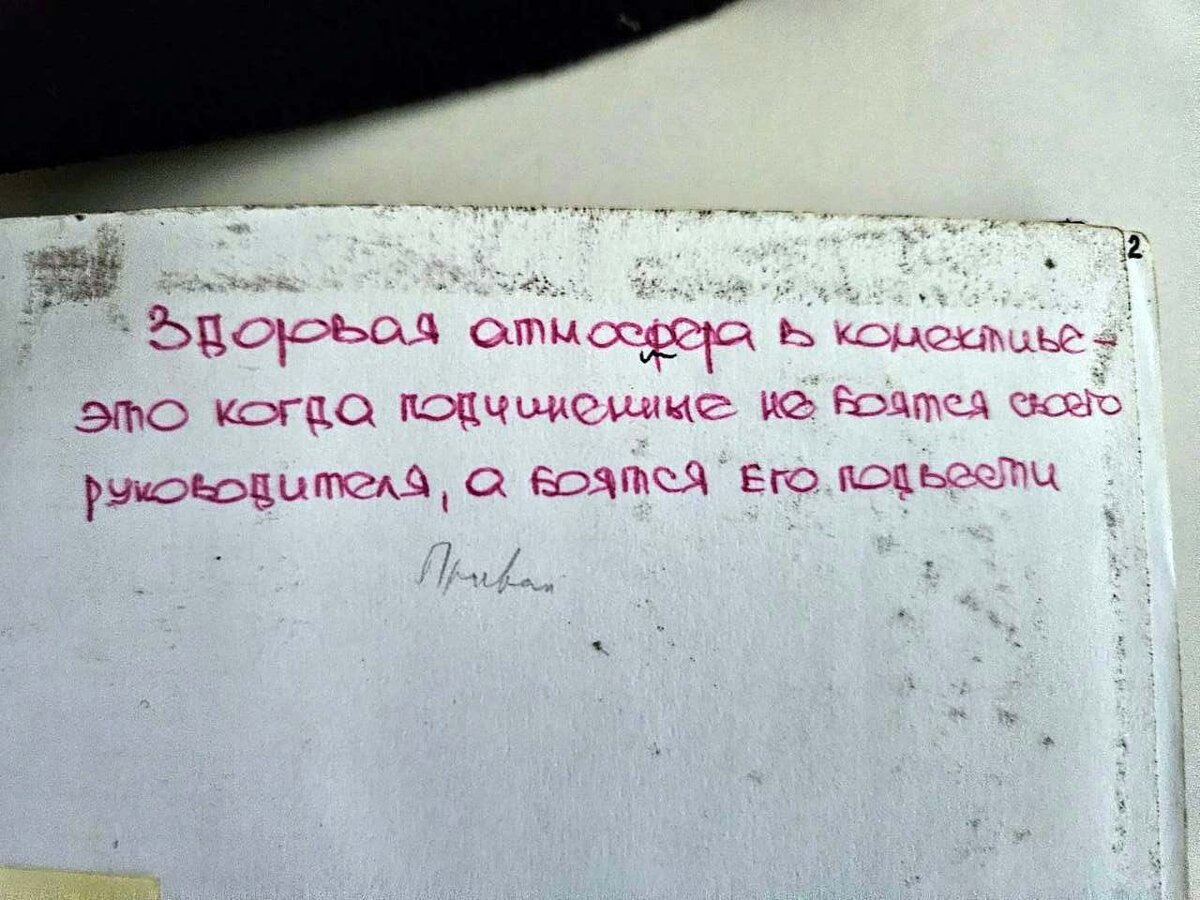 2
Здоровая атмосфера в колективе-
это когда подчиненные не боятся своего
руководителя, а боятся его подвести